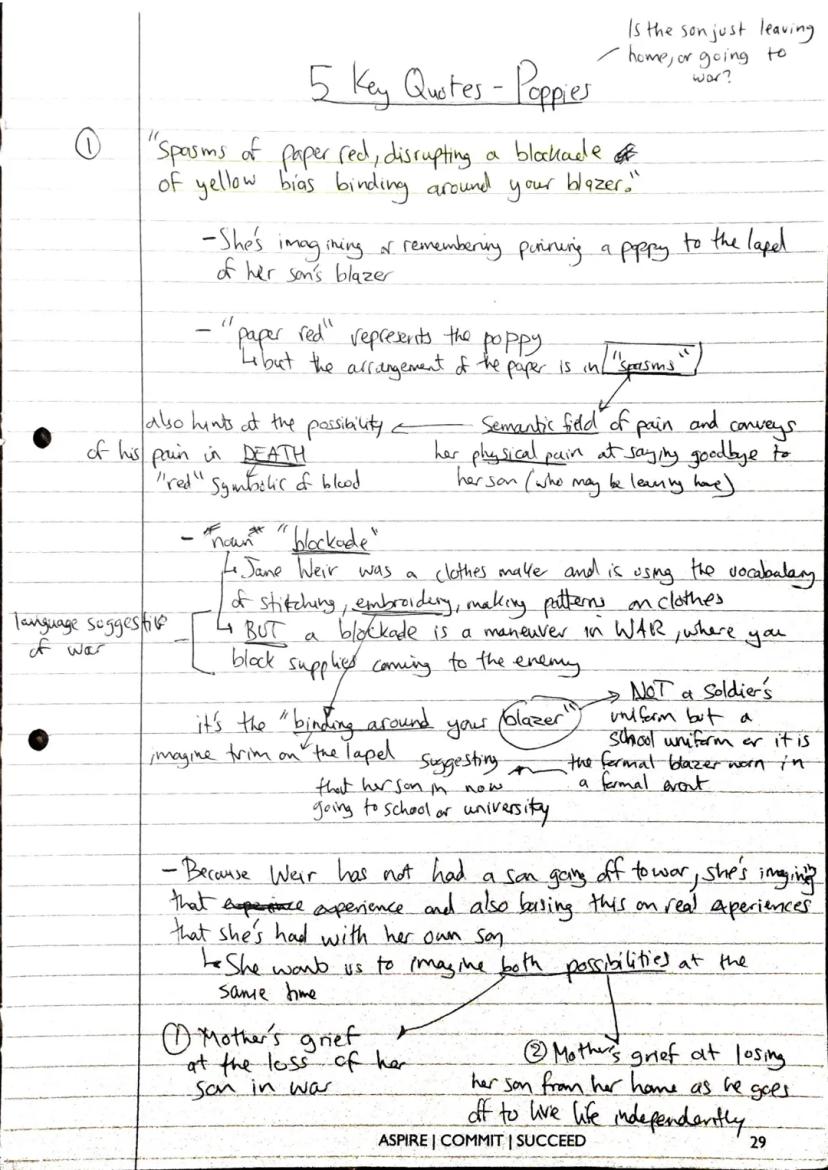 Is the son just leaving
home, or going to
war?
5 Key Quotes - Poppies
①
"Spasms of paper red, disrupting a blockade
of yellow bias binding around your blazer."
- She's imagining or remembering pinning a poppy to the lapel
of her son's blazer
- "paper red" represents the poppy
↳ but the arrangement of the paper is in "spasms"
Semantic field of pain and conveys
her physical pain at saying goodbye to
her son (who may be leaving home)
also hints at the possibility
of his pain in DEATH
"red" symbolic of blood
- *noun* "blockade"
↳ Jane Weir was a clothes maker and is using the vocabulary
of stitching, embroidery, making patterns on clothes
↳ BUT a blockade is a maneuver in WAR, where you
block supplies coming to the enemy
language suggestive
of war
it's the "binding around your blazer"
imagine trim on the lapel
NOT a soldier's
uniform but a
school uniform or it is
the formal blazer worn in
a formal event
suggesting
that her son is now
going to school or university
- Because Weir has not had a son going off to war, she's imagining
that experience and also basing this on real experiences
that she's had with her own son
↳ She wants us to imagine both possibilities at the
same time
① Mother's grief
at the loss of her
son in war
② Mother's grief at losing
her son from her home as he goes
off to live life independently
ASPIRE | COMMIT | SUCCEED
29